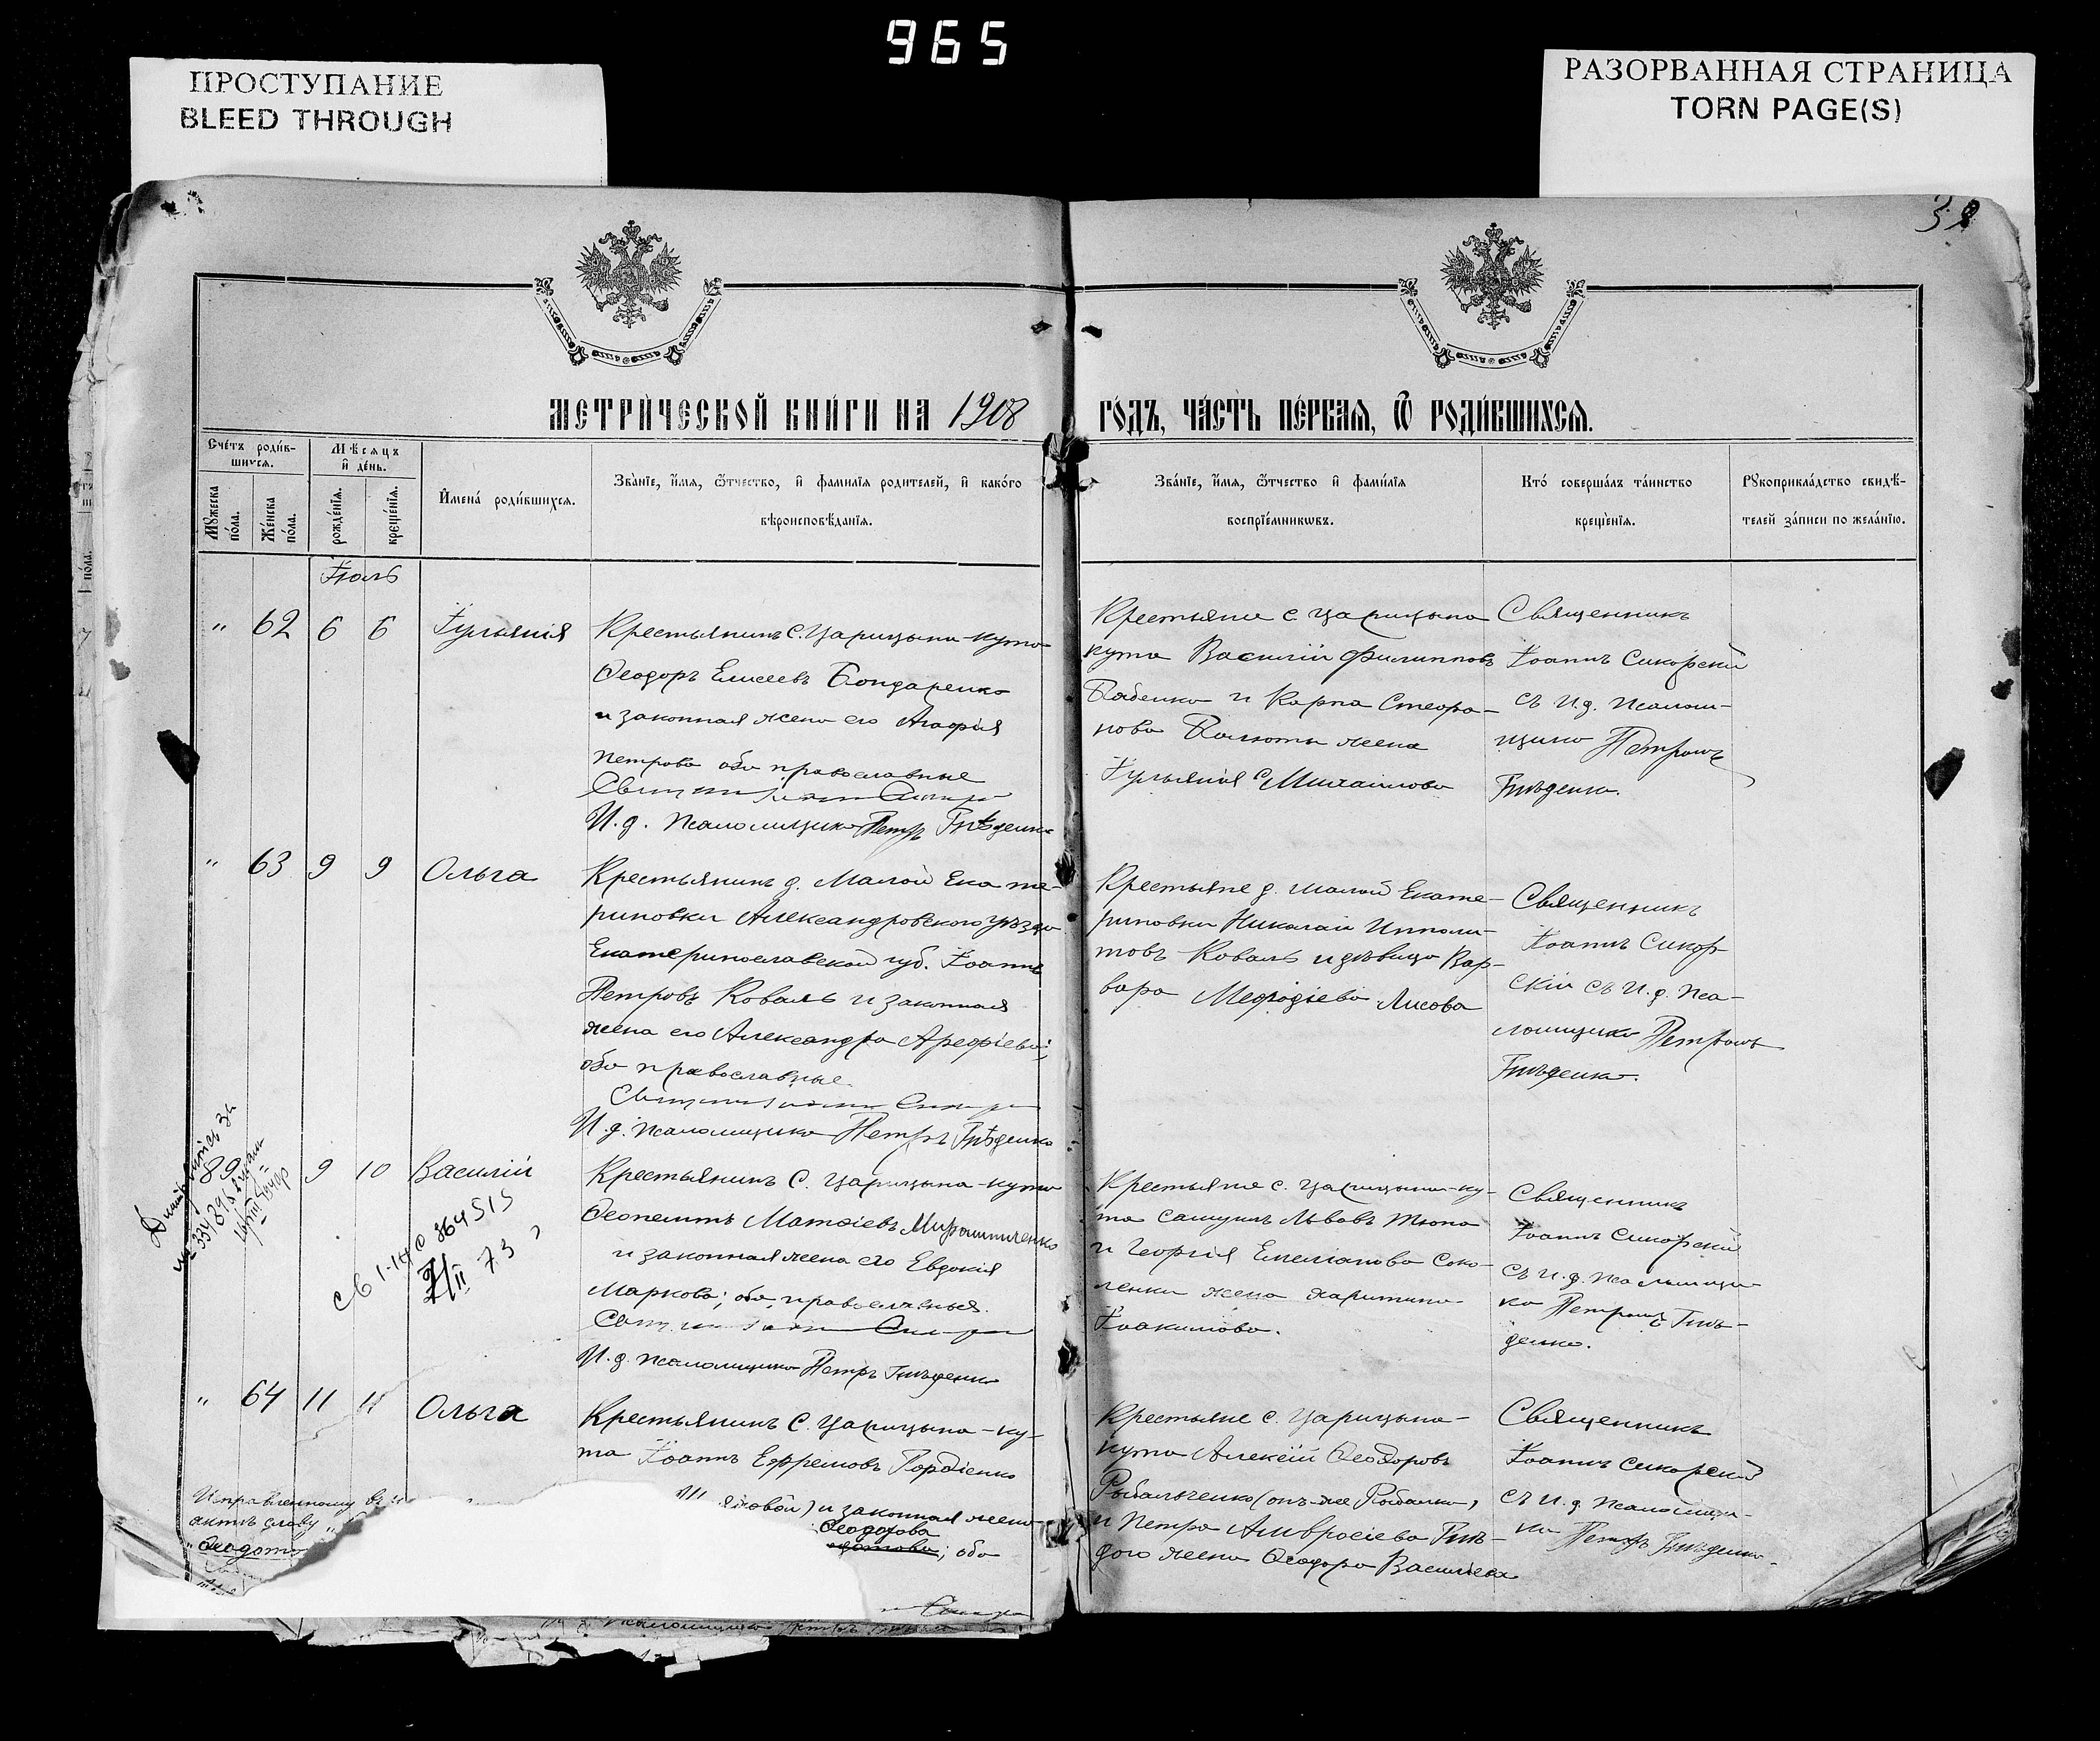 965
ПРОСТУПАНИЕ
BLEED THROUGH
РАЗОРВАННАЯ СТРАНИЦА
TORN PAGE(S)
МЕТРИЧЕСКОЙ КНИГИ НА 1908
ГОДЪ, ЧАСТЬ ПЕРВАЯ, Ѿ РОДИВШИХСЯ.
Счетъ родив-
шихся.
Мужеска пола.
Женска пола.
Мѣсяцъ и день.
рожденія.
крещенія.
Имена родившихся.
Званіе, имя, ѿтчество, и фамилія родителей, и какого
вѣроисповѣданія.
Званіе, имя, ѿтчество и фамилія
воспріемниковъ.
Кто совершалъ таинство
крещенія.
Рукоприкладство свидѣ-
телей записи по желанію.
Іюль
" 62 6 6 Іуліанія
Крестьянинъ с. Царицына-кута
Ѳеодоръ Елисеевъ Бондаренко
и законная жена его Агафія
Петрова оба православные
И. д. псаломщика Петръ Гнѣденко
Крестьяне с. Царицына
кута Василій Филипповъ
Бабенко и Карпа Стефа-
нова жена
Іуліанія Михаилова
Священникъ
Іоаннъ Сикорскій
съ И. д. псалом-
щика Петромъ
Гнѣденко.
" 63 9 9 Ольга
Крестьянинъ д. Малой Екате-
риновки Александровскаго уѣзда
Екатеринославской губ. Іоаннъ
Петровъ Коваль и законная
жена его Александра Арефіева;
оба православные.
И. д. псаломщика Петръ Гнѣденко
Крестьяне д. Малой Екате-
риновки Николай Ипполи-
товъ Коваль и дѣвица Вар-
вара Меѳодіева Лисова
Священникъ
Іоаннъ Сикор-
скій съ И. д. пса-
ломщика Петромъ
Гнѣденко.
89 9 10 Василій
Крестьянинъ с. Царицына-кута
Ѳеопемптъ Матѳіевъ Мирошниченко
и законная жена его Евдокія
Маркова; оба православные.
И. д. псаломщика Петръ Гнѣденко
Крестьяне с. Царицына-ку-
та Самуилъ Львовъ Тюпа
и Георгія Емеліанова Соко-
ленки жена Харитина
Іоакимова.
Священникъ
Іоаннъ Сикорскій
съ И. д. псаломщи-
ка Петромъ Гнѣ-
денко.
" 64 11 11 Ольга
Крестьянинъ с. Царицына-ку-
та Іоаннъ Ефремовъ Гордіенко
и законная жена
Ѳеодорова
; оба
Крестьяне с. Царицына-
кута Алексѣй Ѳеодоровъ
Рыбальченко (онъ-же Рыбалка)
и Петра Амвросіева Гнѣ-
дого жена Ѳеодора Васильева
Священникъ
Іоаннъ Сикорскій
съ И. д. псаломщи-
ка Петръ Гнѣденко.
Исправленному въ
актѣ слову